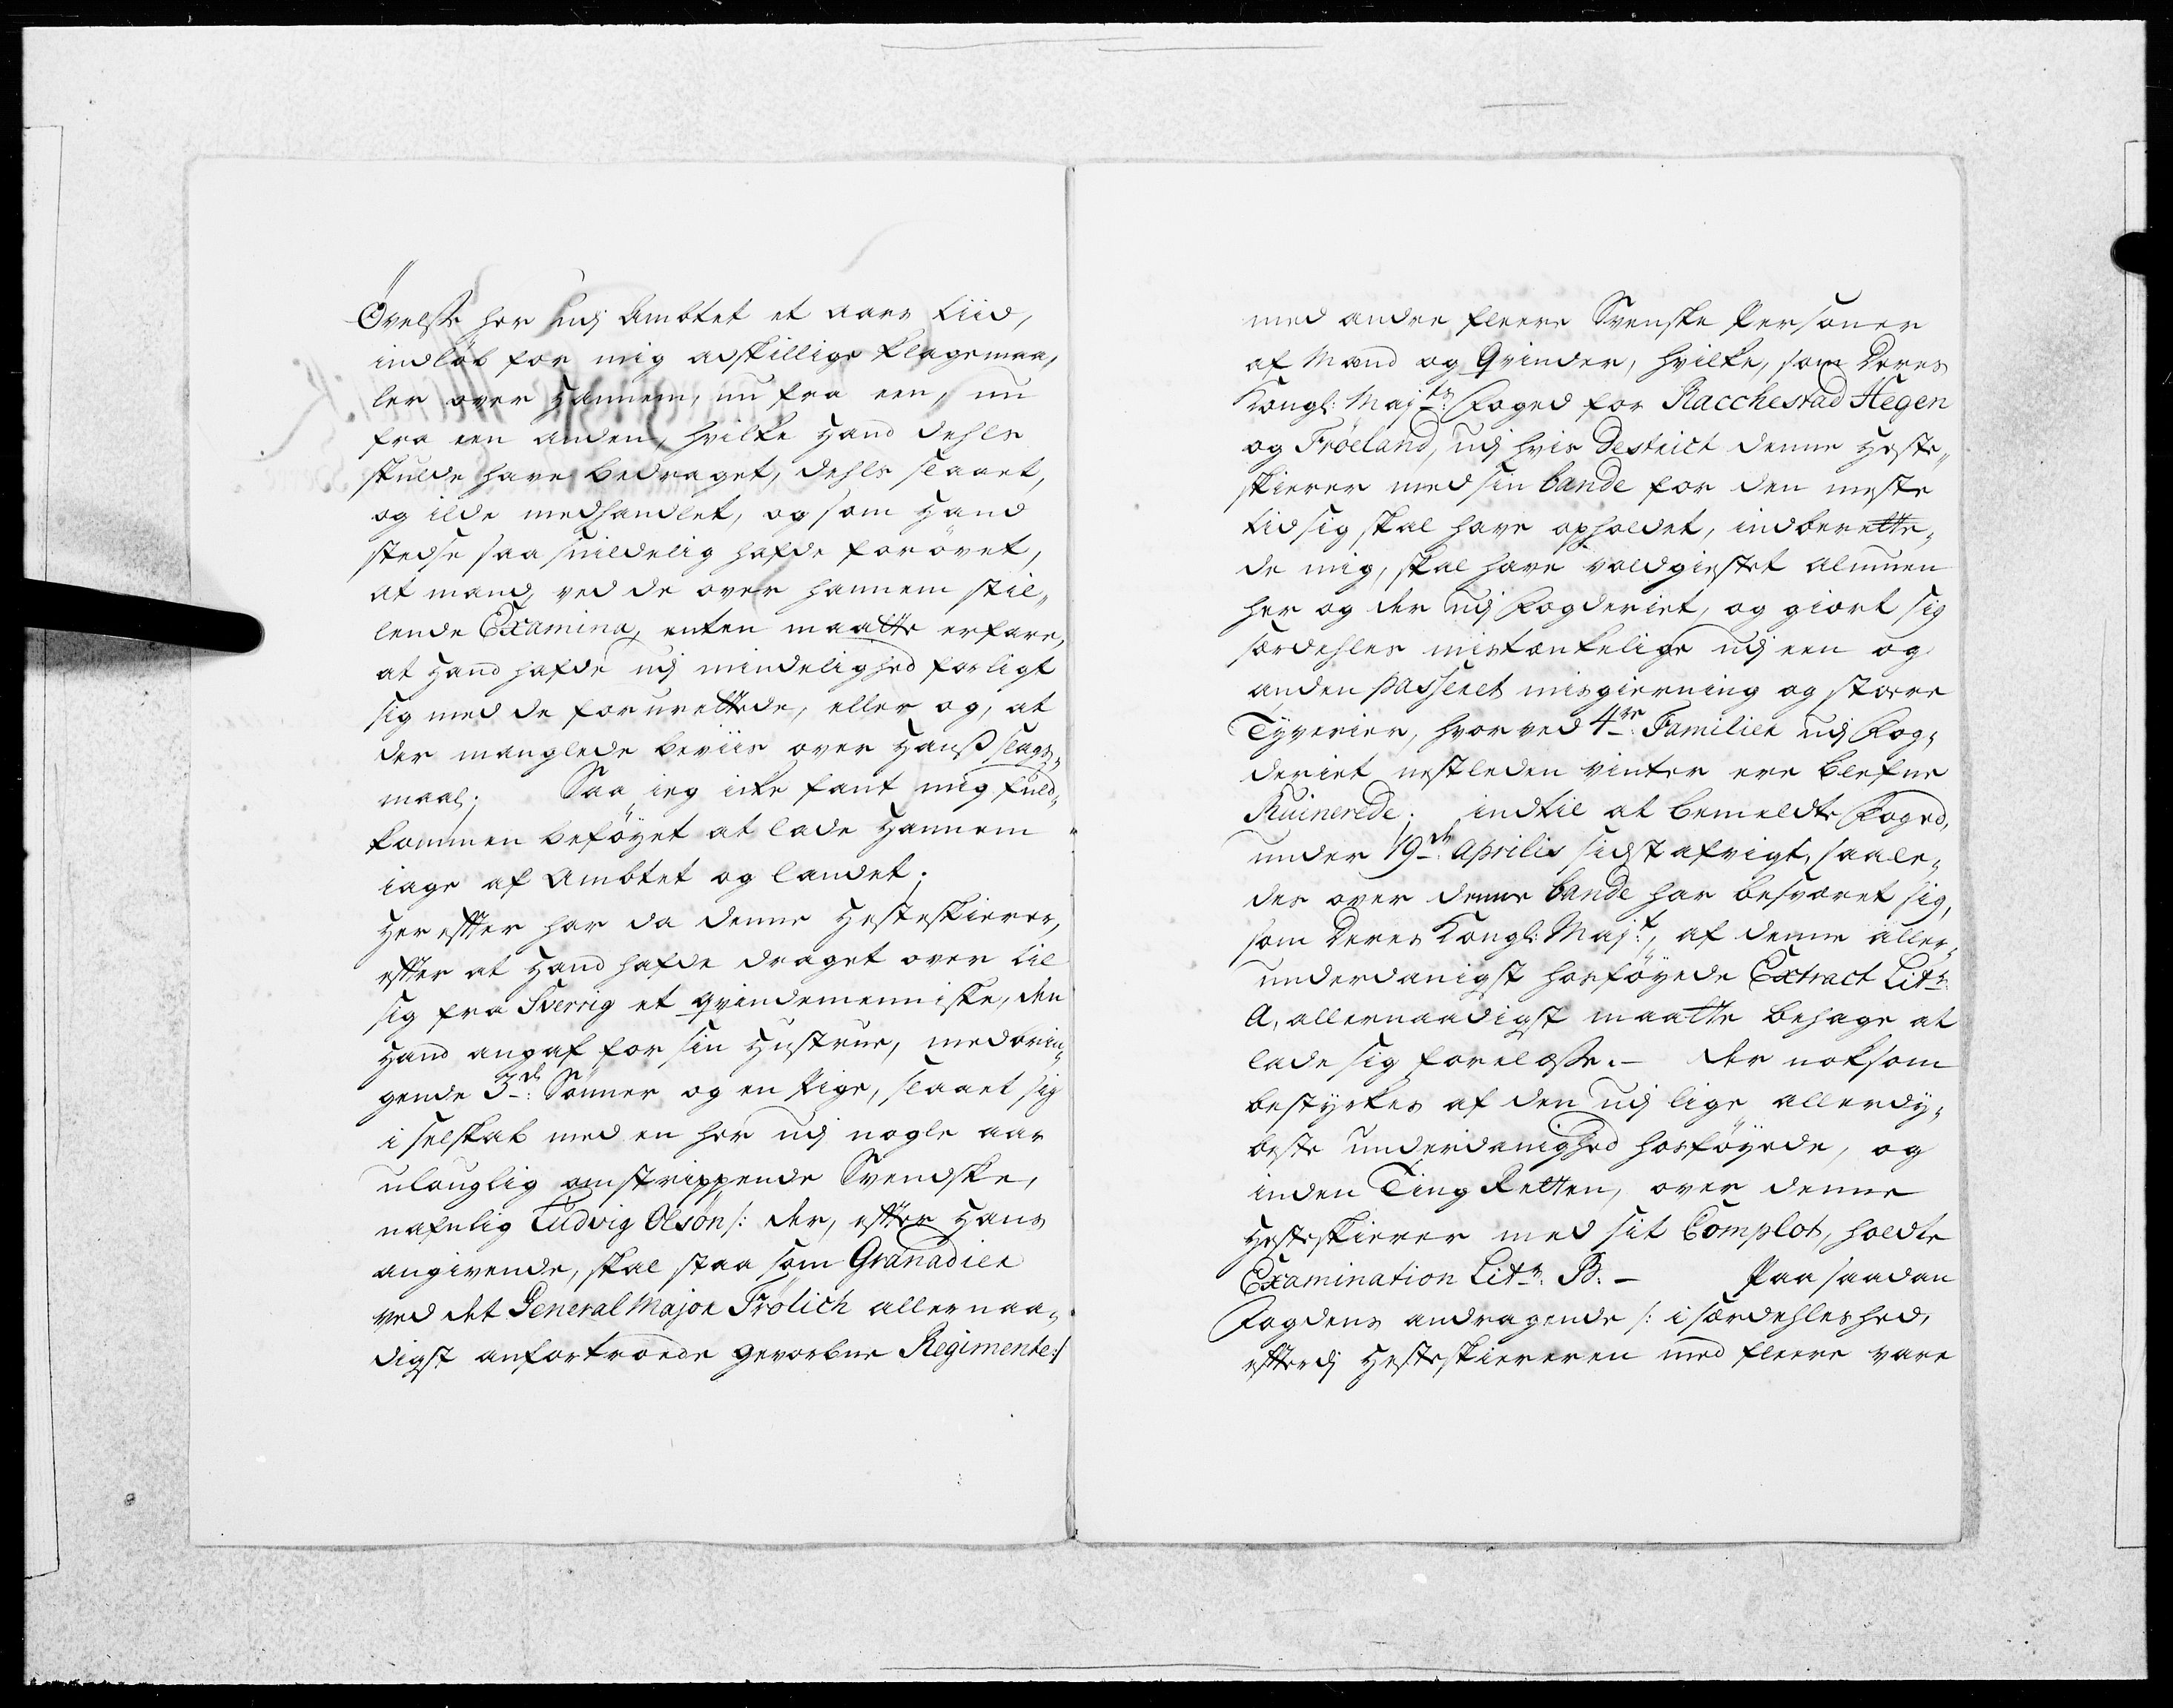 Øvelse her udj Ambtet et aars tiid,
indløb for mig adskillige klagemaa„
ler over Hannem, nu fra een, nu
fra een anden, hvilke Hand dehls
skulde have bedraget, dehls slaaet,
og ilde medhandlet, og som Hand
stedse saa snildelig hafde forøvet,
at mand, ved de over hannem stil„
lende Examina, enten maatte erfare,
at Hand hafde udj mindelighed forligt
sig med de forurettede, eller og, at
der manglede beviis over Hanß slags„
maal; Saa ieg icke fant mig fuld„
kommen beføyet at lade Hannem
iage af Ambtet og landet.
Her effter har da denne Hesteskierer,
effter at Hand hafde draget over til
sig fra Sverrig et qvindemenniske, den
Hand angaf for sin Hustrue, medbrin„
gende 3de: Sønner og en Pige, slaaet sig
i selskab med en her udj nogle aar
ulouglig omstrippende Svendske,
nafnlig Ludvig Olsøn /: der, effter Hans
angivende, skal staa som Granadier
ved det General Major Frølich allernaa„
digst anfortroede gevorbne Regimente :/
med andre fleere Svenske Personer
af Mænd og Qvinder, hvilke, som Deres
Kongl: Majts: Foged for Racchestad Heggen
og Frøeland, udj hvis District denne Heste„
skierer med sin bande for den meste
tid sig skal have opholdet, indberette„
de mig, skal have voldgiestet almuen
her og der udj Fogderiet, og giort sig
særdehles mistænkelige udj een og
anden passeret misgierning og større
Tyverier, hvorved 4re: Familier udj Fog„
deriet nestleden vinter ere blefne
Ruinerede; indtil at bemeldte Foged,
under 19de: Aprilis sidst afvigt, saale„
des over denne bande har besværet sig,
som Deres Kongl: Majt:, af denne aller„
underdanigst hosføyede Extract Litr:
A, allernaadigst maatte behage at
lade sig forelæsse. – der noksom
bestyrkes af den udj lige allerdy„
beste underdanighed hosføyede, og
inden Ting Retten, over denne
Hesteskierer med sit Complot, holdte
Examination Litr: B. – Paa saadan
Fogdens andragende /: i særdehleshed,
effterdj Hesteskiereren med fleere vare